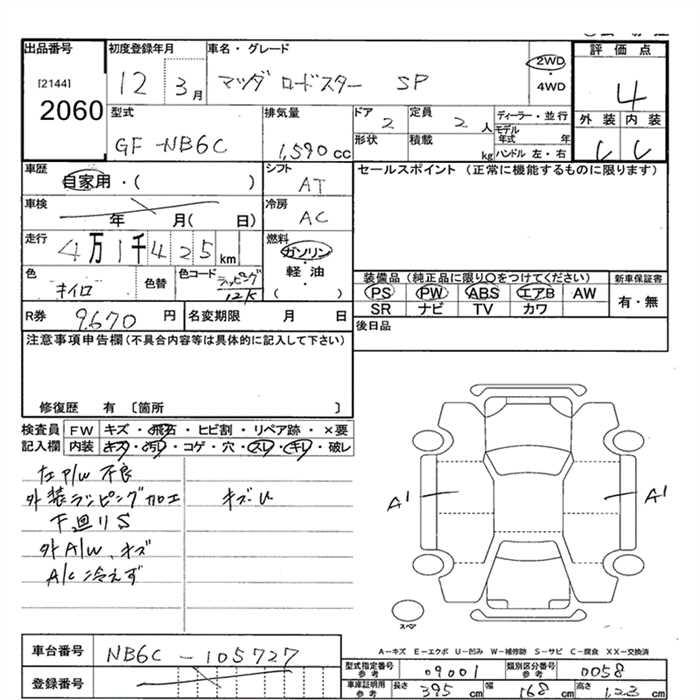 出品番号 初度登録年月 車名・グレード 評価点
[2144] 12 3月 マツダ ロードスター SP 2WD ・ 4WD 4
2060
型式 排気量 ドア 定員 ディーラー・並行 外装 内装
GF-NB6C 1,590cc 2 2人 モデル年式 年
形状 積載 kg ハンドル 左・右
車歴 シフト セールスポイント (正常に機能するものに限ります)
自家用・( ) AT
車検 冷房
年 月( 日) AC
走行 燃料
4万1千425km ガソリン・軽油・( )
色 色替 色コード
キイロ ラッピング 12K
装備品 (純正品に限り○をつけてください) 新車保証書
PS PW ABS エアB AW 有・無
SR ナビ TV カワ
R券 9,670円 名変期限 月 日 後日品
注意事項申告欄(不具合内容等は具体的に記入して下さい)
修復歴 有 〔箇所 〕
検査員記入欄 FW キズ・飛石・ヒビ割・リペア跡・×要
内装 キズ・汚レ・コゲ・穴・スレ・キレ・破レ
左P/W 不良
外装ラッピング加工 キズU
下廻りS
外A/W、キズ
A/C 冷えず
A1 A1
スペア
A-キズ E-エクボ U-凹み W-補修跡 S-サビ C-腐食 XX-交換済
車台番号 NB6C-105727
登録番号
型式指定番号 参考 09001 類別区分番号 参考 0058
車庫証明用 参考 長さ 395cm 幅 168cm 高さ 123cm